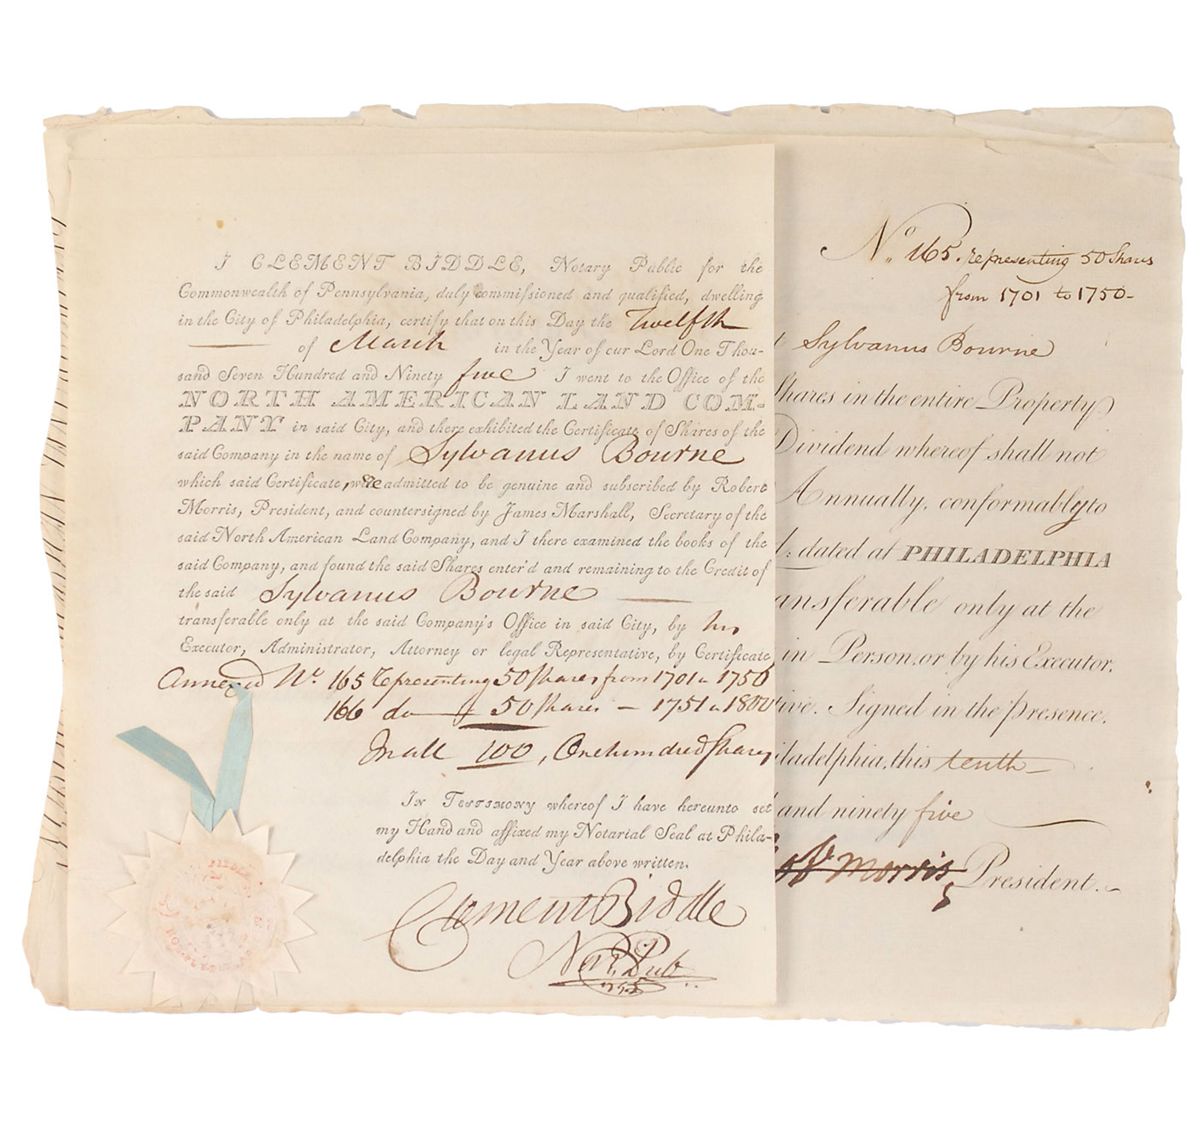 I CLEMENT BIDDLE, Notary Public for the
Commonwealth of Pennsylvania, duly commissioned and qualified, dwelling
in the City of Philadelphia, certify that on this Day the Twelfth
of March in the Year of our Lord One Thou-
sand Seven Hundred and Ninety five I went to the Office of the
NORTH AMERICAN LAND COM-
PANY in said City, and there exhibited the Certificate of Shares of the
said Company in the name of Sylvanus Bourne
which said Certificate, were admitted to be genuine and subscribed by Robert
Morris, President, and countersigned by James Marshall, Secretary of the
said North American Land Company, and I there examined the books of the
said Company, and found the said Shares enter'd and remaining to the Credit of
the said Sylvanus Bourne
transferable only at the said Company's Office in said City, by his
Executor, Administrator, Attorney or legal Representative, by Certificate
annexed Nº 165 representing 50 shares from 1701 a 1750
166 do 50 shares – 1751 a 1800
In all 100, One hundred Shares
In Testimony whereof I have hereunto set
my Hand and affixed my Notarial Seal at Phila-
delphia the Day and Year above written.
Clement Biddle
Not. Pub
1795
No. 165. representing 50 Shares
from 1701 to 1750-
t Sylvanus Bourne
Shares in the entire Property
Dividend whereof shall not
Annually, conformably to
dated at PHILADELPHIA
ansferable only at the
in Person, or by his Executor,
tive. Signed in the presence,
iladelphia, this tenth
and ninety five
Morris, President.